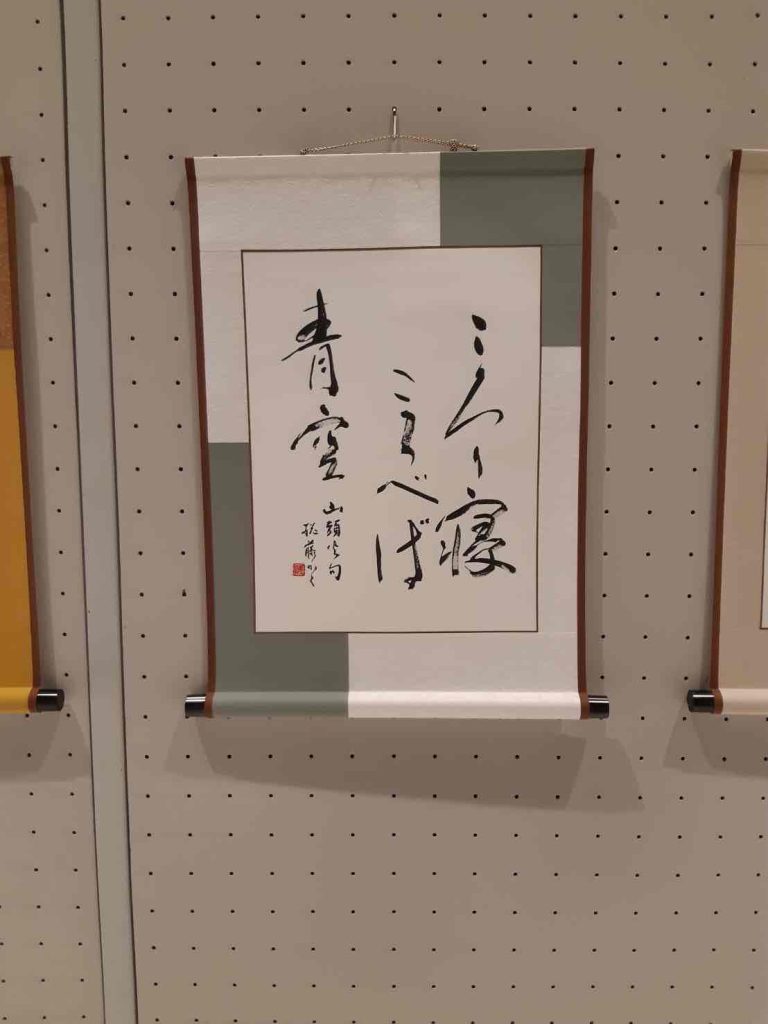 ころり寝
ころべば
青空
山頭火句
かく